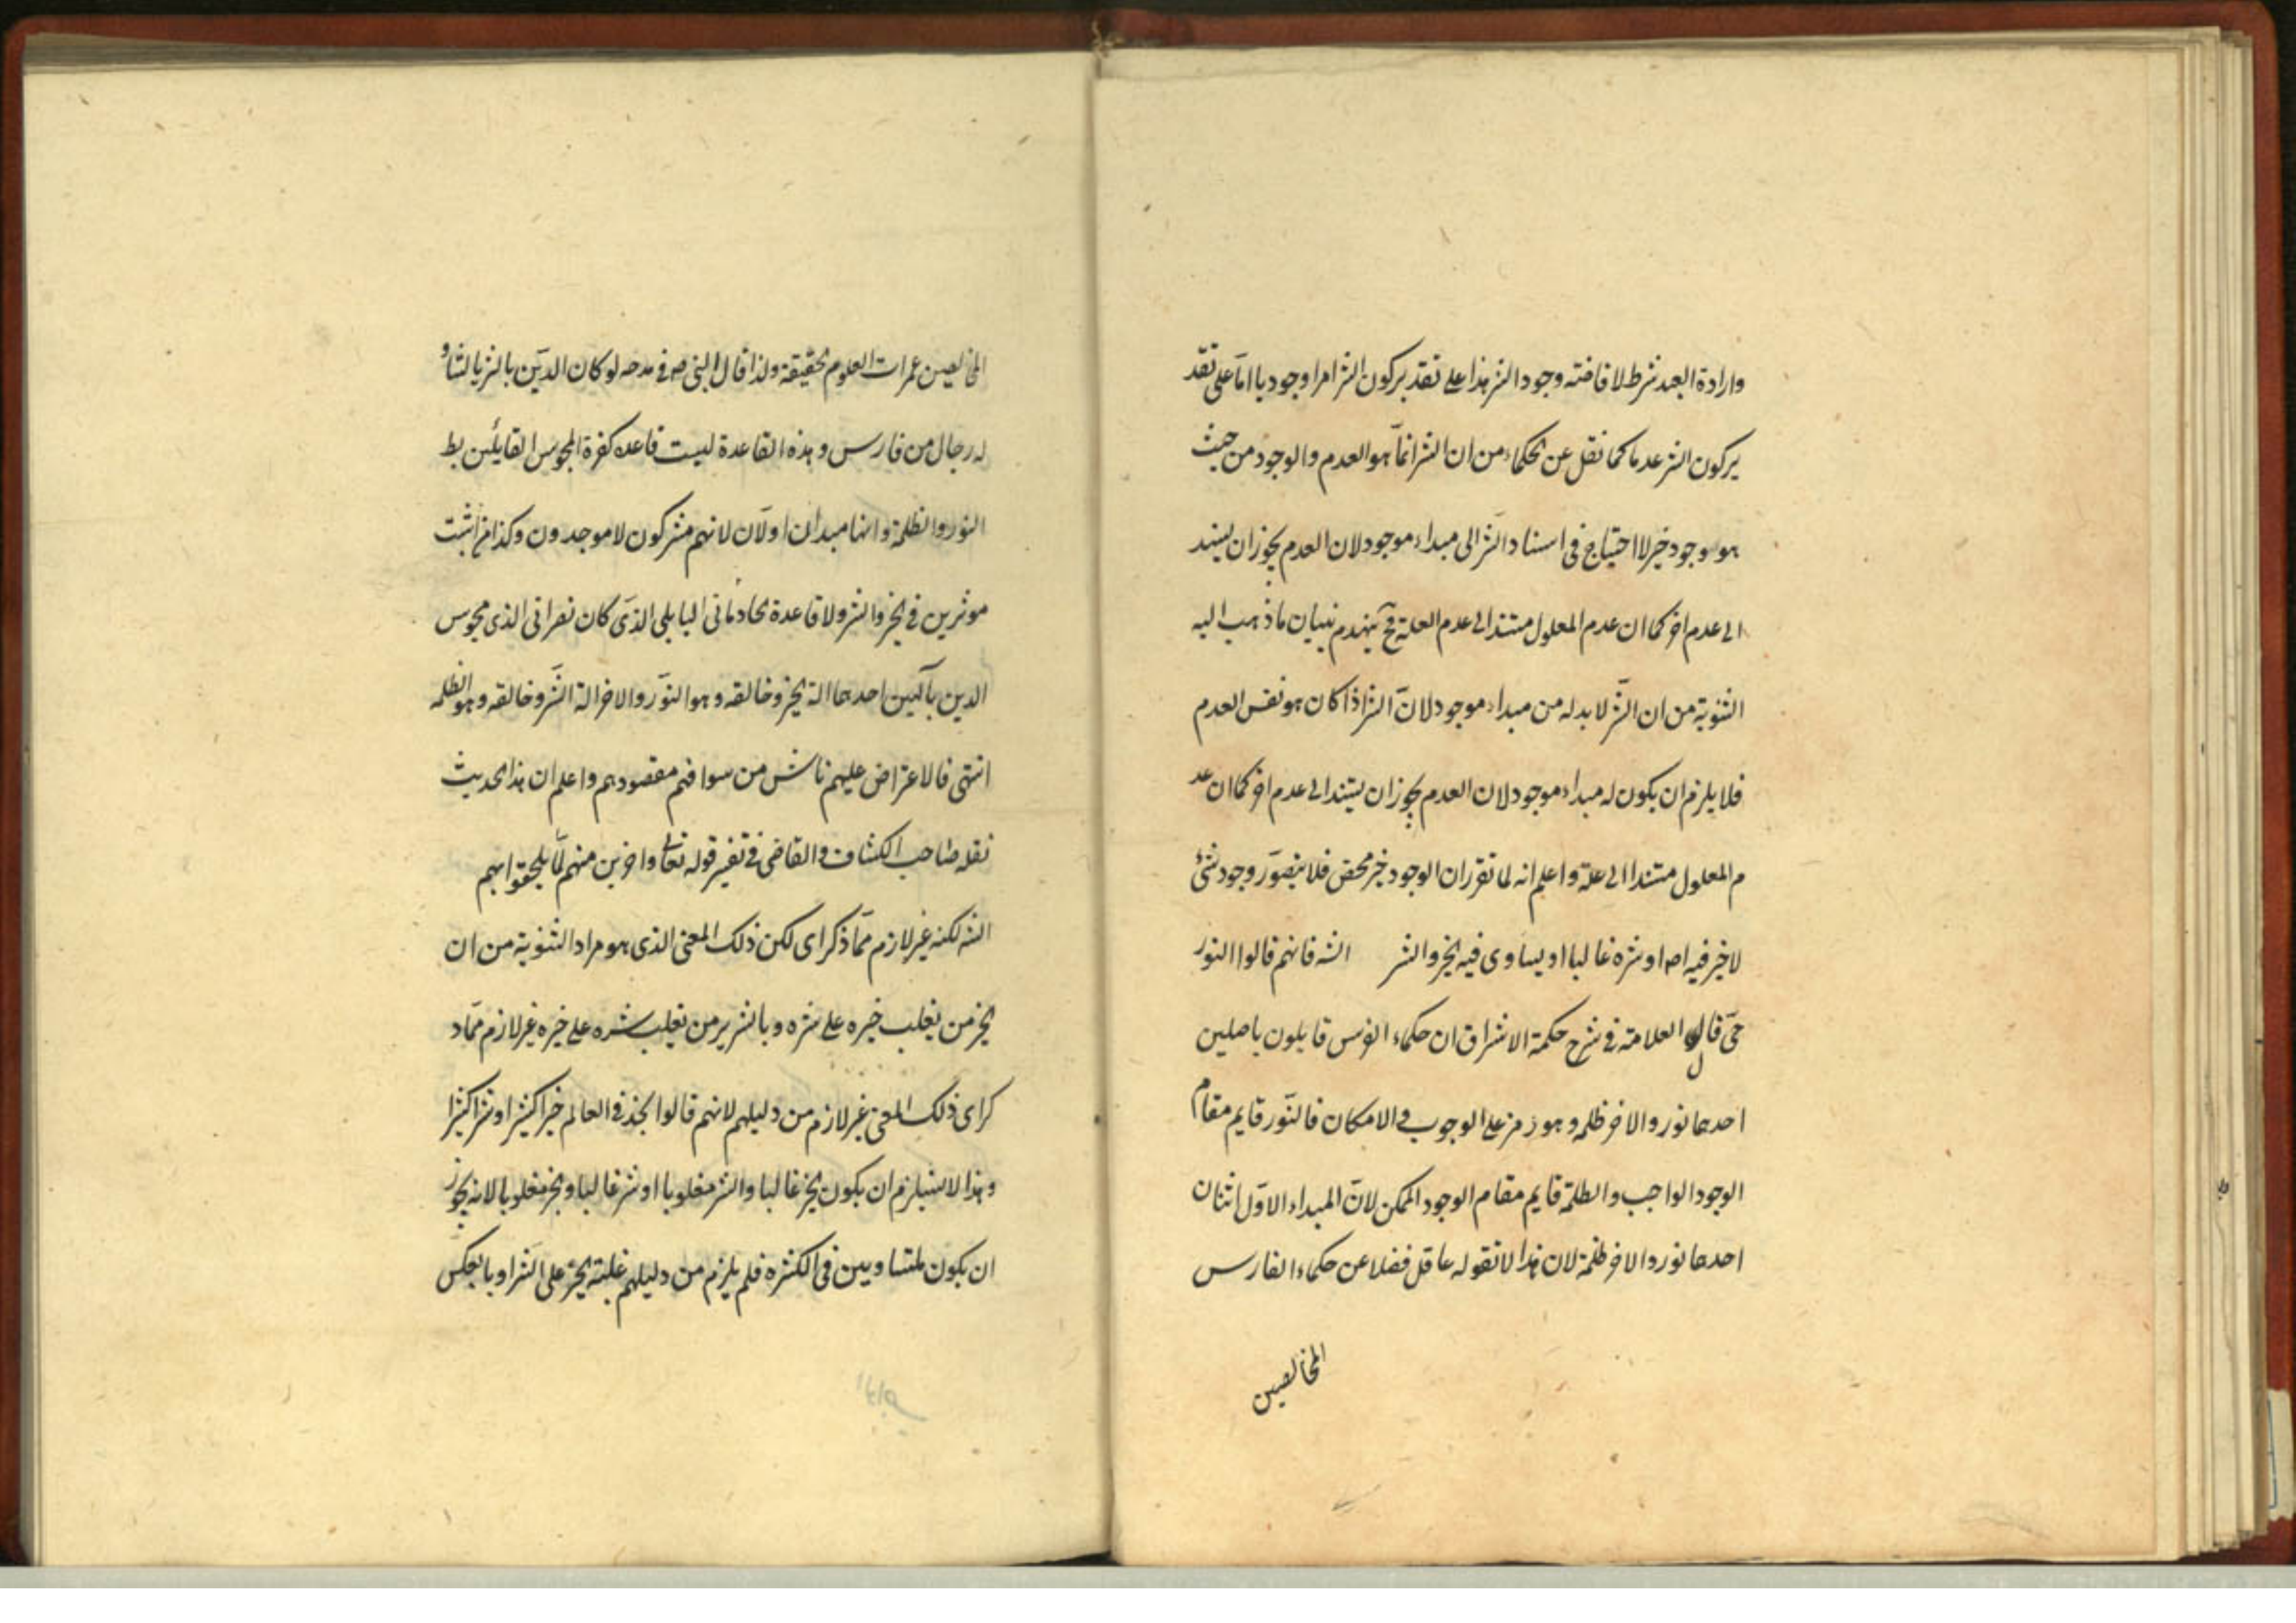 وارادة العبد شرط لا فاضته وجود الشر هذا على تقدير كون الشر امرا وجوديا اما على تقد
ير كون الشر عدما كما نقل عن الحكماء من ان الشر انما هو العدم والوجود من حيث
هو وجود خير لا احتياج فى اسناد الشر الى مبداء موجود لان العدم يجوز ان يستند
الى عدم اخر كما ان عدم المعلول مستند الى عدم العلة فح ينهدم بنيان ما ذهب اليه
الثنوية من ان الشر لا بد له من مبداء موجود لان الشر اذا كان هو نفس العدم
فلا يلزم ان يكون له مبداء موجود لان العدم يجوز ان يستند الى عدم اخر كما ان عد
م المعلول مستندا الى علة واعلم انه لما تقرر ان الوجود خير محض فلا يتصور وجود شئ
لا خير فيه اصا او شره غالبا او يساوى فيه الخير والشر الشه فانهم قالوا النور
حتى قال العلامة فى شرح حكمة الاشراق ان حكماء الفرس قايلون باصلين
احدهما نور والاخر ظلمه وهو رمز على الوجوب والامكان فالنور قايم مقام
الوجود الواجب والظلمة قايم مقام الوجود الممكن لان المبداء الاول اثنان
احدهما نور والاخر ظلمة لان هذا لا تقوله عاقل فضلا عن حكماء الفارس
المخالصين
المخالصين غمرات العلوم الحقيقة ولذا قال النبى ص فى مدحه لو كان الدين بالثريا لتناو
له رجال من فارس وهذه القاعدة ليست قاعده كفرة المجوس القايلين بظ
النور والظلمة وانها مبدان اولان لانهم مشركون لا موحدون وكذا من اثبت
موثرين فى الخير والشر ولا قاعدة الحاد مانى البابلى الذى كان نصرانى الذى مجوس
الدين بآلهين احدهما الة الخير وخالقه وهو النور والاخر الة الشر وخالقه وهو الظلمه
انتهى فالاعتراض عليهم ناش من سوا فهم مقصودهم واعلم ان هذا الحديث
نقله صاحب الكشاف والقاضى فى تفسير قوله تعالى واخرين منهم لما يلحقوا بهم
الشه لكنه غير لازم مما ذكر اى لكن ذلك المعنى الذى هو مراد الثنوية من ان
الخير من يغلب خيره على شره وبالشرير من يغلب شره على خيره غير لازم مما ذ
كر اى ذلك المعنى غير لازم من دليلهم لانهم قالوا نجد فى العالم خيرا كثيرا وشرا كثيرا
وهذا لا يستلزم ان يكون الخير غالبا والشر مغلوبا او شر غالبا والخير مغلوبا لانه يجوز
ان يكون متساويين فى الكثره فلم يلزم من دليلهم غلبة الخير على الشر او بالعكس